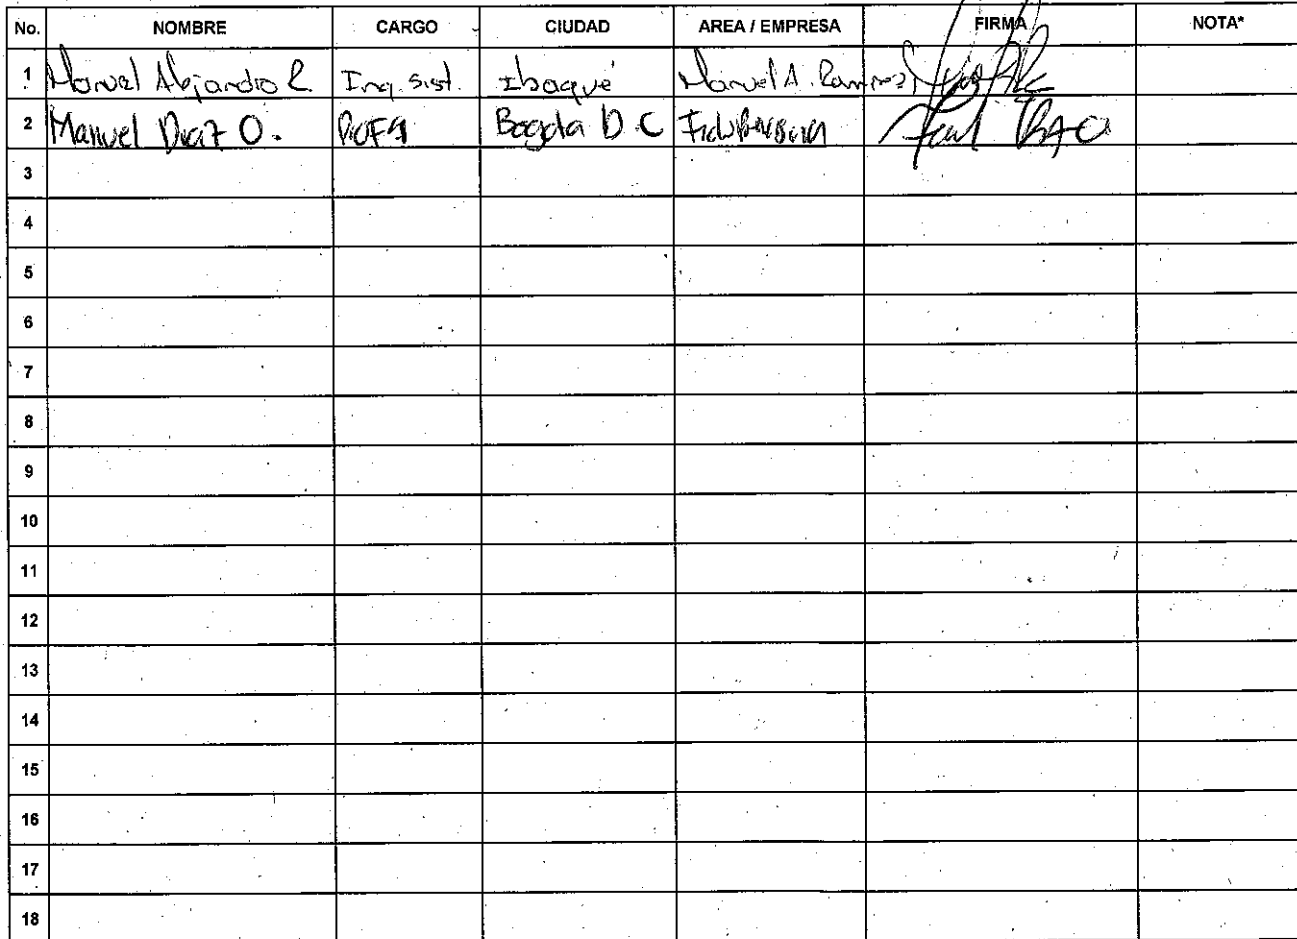 No. NOMBRE CARGO CIUDAD AREA / EMPRESA FIRMA NOTA*
1 Manuel Alejandro R Ing. Sist. Ibagué Manuel A. Ramirez
2 Manuel Diaz O. Bogota D.C
3
4
5
6
7
8
9
10
11
12
13
14
15
16
17
18